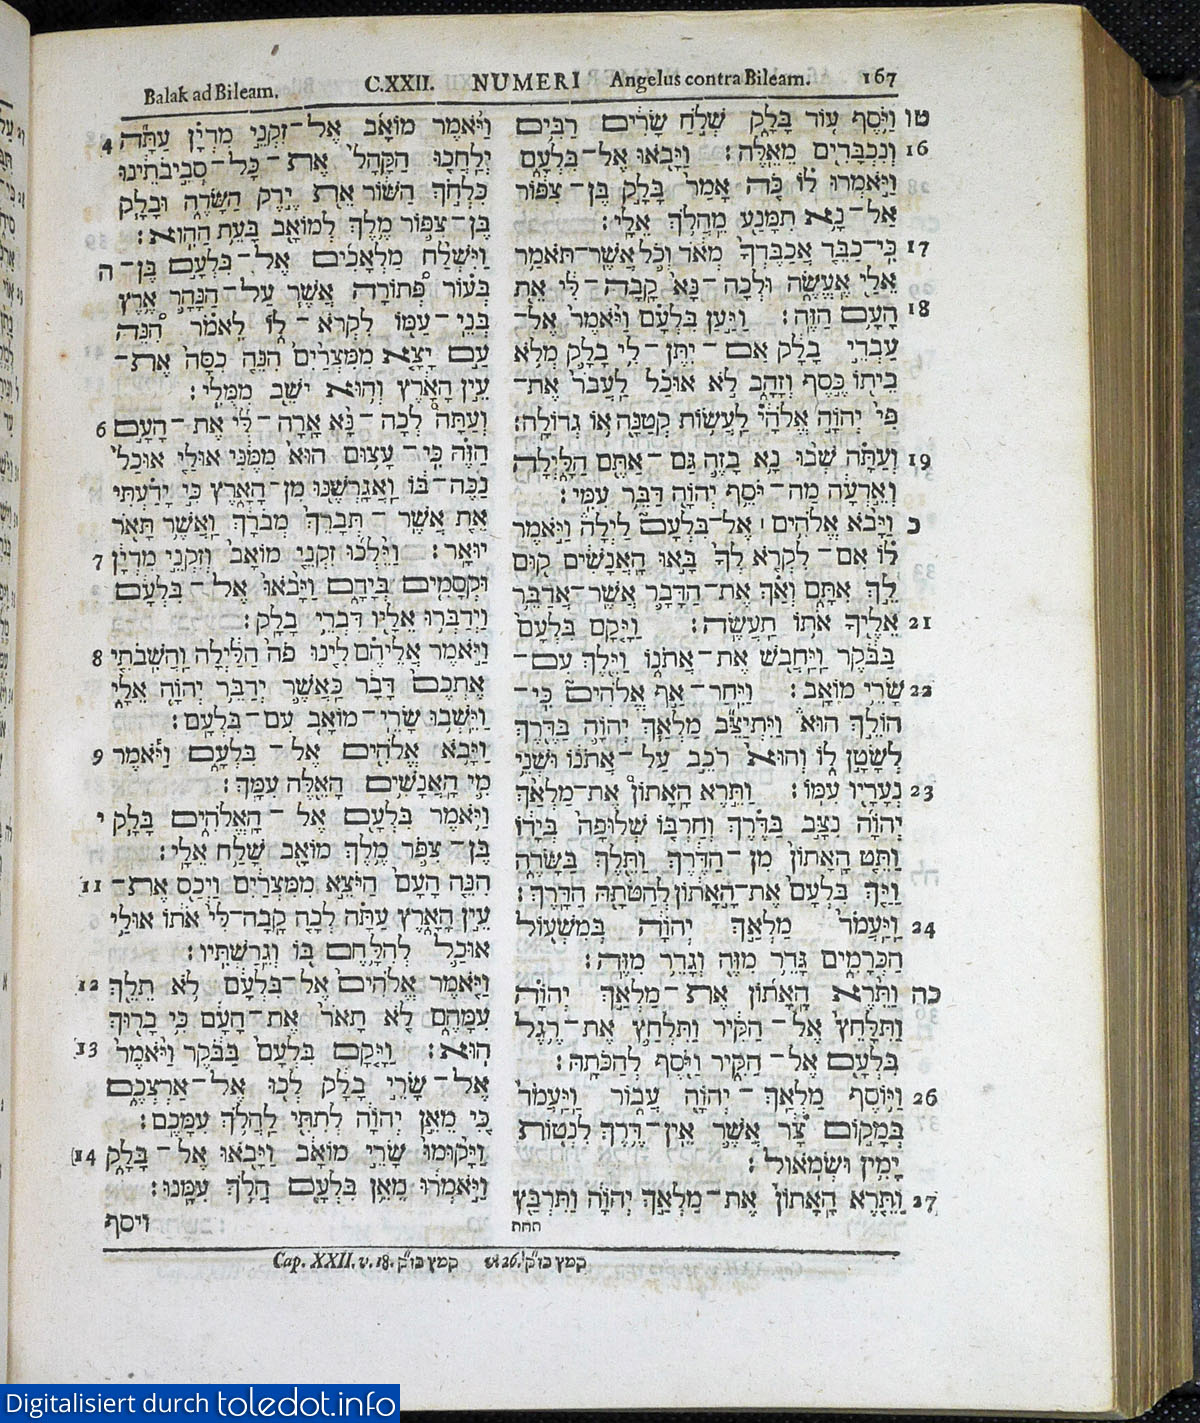 Balak ad Bileam. C.XXII. NUMERI Angelus contra Bileam. 167
וַיֹּאמֶר מוֹאָב אֶל־זִקְנֵי מִדְיָן עַתָּה 4
יְלַחֲכוּ הַקָּהָל אֶת־כָּל־סְבִיבֹתֵינוּ
כִּלְחֹךְ הַשּׁוֹר אֵת יֶרֶק הַשָּׂדֶה וּבָלָק
בֶּן־צִפּוֹר מֶלֶךְ לְמוֹאָב בָּעֵת הַהִוא׃
וַיִּשְׁלַח מַלְאָכִים אֶל־בִּלְעָם בֶּן־ ה
בְּעוֹר פְּתוֹרָה אֲשֶׁר עַל־הַנָּהָר אֶרֶץ
בְּנֵי־עַמּוֹ לִקְרֹא־לוֹ לֵאמֹר הִנֵּה
עַם יָצָא מִמִּצְרַיִם הִנֵּה כִסָּה אֶת־
עֵין הָאָרֶץ וְהוּא יֹשֵׁב מִמֻּלִי׃
וְעַתָּה לְכָה־נָּא אָרָה־לִּי אֶת־הָעָם 6
הַזֶּה כִּי־עָצוּם הוּא מִמֶּנִּי אוּלַי אוּכַל
נַכֶּה־בּוֹ וַאֲגָרְשֶׁנּוּ מִן־הָאָרֶץ כִּי יָדַעְתִּי
אֵת אֲשֶׁר־תְּבָרֵךְ מְבֹרָךְ וַאֲשֶׁר תָּאֹר
יוּאָר׃ וַיֵּלְכוּ זִקְנֵי מוֹאָב וְזִקְנֵי מִדְיָן 7
וּקְסָמִים בְּיָדָם וַיָּבֹאוּ אֶל־בִּלְעָם
וַיְדַבְּרוּ אֵלָיו דִּבְרֵי בָלָק׃
וַיֹּאמֶר אֲלֵיהֶם לִינוּ פֹה הַלַּיְלָה וַהֲשִׁבֹתִי 8
אֶתְכֶם דָּבָר כַּאֲשֶׁר יְדַבֵּר יְהוָה אֵלָי
וַיֵּשְׁבוּ שָׂרֵי־מוֹאָב עִם־בִּלְעָם׃
וַיָּבֹא אֱלֹהִים אֶל־בִּלְעָם וַיֹּאמֶר 9
מִי הָאֲנָשִׁים הָאֵלֶּה עִמָּךְ׃
וַיֹּאמֶר בִּלְעָם אֶל־הָאֱלֹהִים בָּלָק י
בֶּן־צִפֹּר מֶלֶךְ מוֹאָב שָׁלַח אֵלָי׃
הִנֵּה הָעָם הַיֹּצֵא מִמִּצְרַיִם וַיְכַס אֶת־ 11
עֵין הָאָרֶץ עַתָּה לְכָה קָבָה־לִּי אֹתוֹ אוּלַי
אוּכַל לְהִלָּחֶם בּוֹ וְגֵרַשְׁתִּיו׃
וַיֹּאמֶר אֱלֹהִים אֶל־בִּלְעָם לֹא תֵלֵךְ 12
עִמָּהֶם לֹא תָאֹר אֶת־הָעָם כִּי בָרוּךְ
הוּא׃ וַיָּקָם בִּלְעָם בַּבֹּקֶר וַיֹּאמֶר 13
אֶל־שָׂרֵי בָלָק לְכוּ אֶל־אַרְצְכֶם
כִּי מֵאֵן יְהוָה לְתִתִּי לַהֲלֹךְ עִמָּכֶם׃
וַיָּקוּמוּ שָׂרֵי מוֹאָב וַיָּבֹאוּ אֶל־בָּלָק 14
וַיֹּאמְרוּ מֵאֵן בִּלְעָם הֲלֹךְ עִמָּנוּ׃
ויסף
טו וַיֹּסֶף עוֹד בָּלָק שְׁלֹחַ שָׂרִים רַבִּים
וְנִכְבָּדִים מֵאֵלֶּה׃ וַיָּבֹאוּ אֶל־בִּלְעָם 16
וַיֹּאמְרוּ לוֹ כֹּה אָמַר בָּלָק בֶּן־צִפּוֹר
אַל־נָא תִמָּנַע מֵהֲלֹךְ אֵלָי׃
כִּי־כַבֵּד אֲכַבֶּדְךָ מְאֹד וְכֹל אֲשֶׁר־תֹּאמַר 17
אֵלַי אֶעֱשֶׂה וּלְכָה־נָּא קָבָה־לִּי אֵת
הָעָם הַזֶּה׃ וַיַּעַן בִּלְעָם וַיֹּאמֶר אֶל־ 18
עַבְדֵי בָלָק אִם־יִתֶּן־לִי בָלָק מְלֹא
בֵיתוֹ כֶּסֶף וְזָהָב לֹא אוּכַל לַעֲבֹר אֶת־
פִּי יְהוָה אֱלֹהָי לַעֲשׂוֹת קְטַנָּה אוֹ גְדוֹלָה׃
וְעַתָּה שְׁבוּ נָא בָזֶה גַּם־אַתֶּם הַלָּיְלָה 19
וְאֵדְעָה מַה־יֹּסֵף יְהוָה דַּבֵּר עִמִּי׃
כ וַיָּבֹא אֱלֹהִים׀ אֶל־בִּלְעָם לַיְלָה וַיֹּאמֶר
לוֹ אִם־לִקְרֹא לְךָ בָּאוּ הָאֲנָשִׁים קוּם
לֵךְ אִתָּם וְאַךְ אֶת־הַדָּבָר אֲשֶׁר־אֲדַבֵּר
אֵלֶיךָ אֹתוֹ תַעֲשֶׂה׃ וַיָּקָם בִּלְעָם 21
בַּבֹּקֶר וַיַּחֲבֹשׁ אֶת־אֲתֹנוֹ וַיֵּלֶךְ עִם־
שָׂרֵי מוֹאָב׃ וַיִּחַר־אַף אֱלֹהִים כִּי־ 22
הוֹלֵךְ הוּא וַיִּתְיַצֵּב מַלְאַךְ יְהוָה בַּדֶּרֶךְ
לְשָׂטָן לוֹ וְהוּא רֹכֵב עַל־אֲתֹנוֹ וּשְׁנֵי
נְעָרָיו עִמּוֹ׃ וַתֵּרֶא הָאָתוֹן אֶת־מַלְאַךְ 23
יְהוָה נִצָּב בַּדֶּרֶךְ וְחַרְבּוֹ שְׁלוּפָה בְּיָדוֹ
וַתֵּט הָאָתוֹן מִן־הַדֶּרֶךְ וַתֵּלֶךְ בַּשָּׂדֶה
וַיַּךְ בִּלְעָם אֶת־הָאָתוֹן לְהַטֹּתָהּ הַדָּרֶךְ׃
וַיַּעֲמֹד מַלְאַךְ יְהוָה בְּמִשְׁעוֹל 24
הַכְּרָמִים גָּדֵר מִזֶּה וְגָדֵר מִזֶּה׃
כה וַתֵּרֶא הָאָתוֹן אֶת־מַלְאַךְ יְהוָה
וַתִּלָּחֵץ אֶל־הַקִּיר וַתִּלְחַץ אֶת־רֶגֶל
בִּלְעָם אֶל־הַקִּיר וַיֹּסֶף לְהַכֹּתָהּ׃
וַיּוֹסֶף מַלְאַךְ־יְהוָה עֲבוֹר וַיַּעֲמֹד 26
בְּמָקוֹם צָר אֲשֶׁר אֵין־דֶּרֶךְ לִנְטוֹת
יָמִין וּשְׂמֹאול׃
וַתֵּרֶא הָאָתוֹן אֶת־מַלְאַךְ יְהוָה וַתִּרְבַּץ 27
תחת
Cap. XXII. v. 18. קמץ בז״ק v. 26. קמץ בז״ק
Digitalisiert durch toledot.info